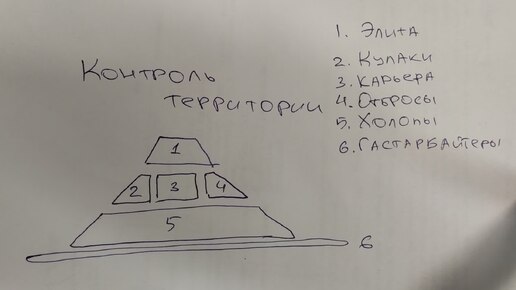 Контроль
территории
1. Элита
2. Кулаки
3. Карьера
4. Отбросы
5. Холопы
6. Гастарбайтеры
1
2 3 4
5
6